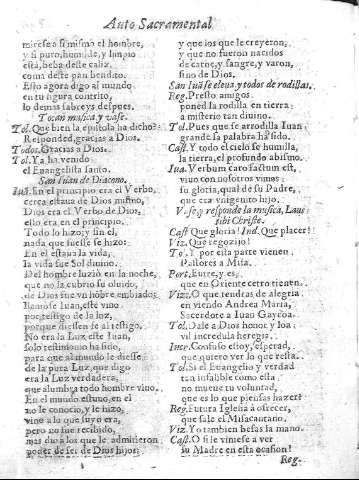 Auto Sacramental
mirese a si mismo el hombre,
y si puro, humilde, y limpio
està, beba deste caliz,
coma deste pan bendito.
Esto agora digo al mundo
en tu figura contrito,
lo demàs sabreys despues.
Tocan musica, y vase.
Tol. Que bien la epistola ha dicho?
Responded, gracias a Dios.
Todos. Gracias a Dios.
Tol. Ya ha venido
el Euangelista santo.
San Iuan de Diacono.
Iuā. En el principio era el Verbo,
cerca estaua de Dios mismo,
Dios era el Verbo de Dios,
ello era en el principio.
Todo lo hizo; y sin el,
nada que fuesse se hizo:
En el estaua la vida,
la vida fue Sol diuino.
Del hombre luziò en la noche,
que no la cubriò su oluido,
de Dios fue vn hōbre embiado:
llamose Iuan, este vino
por testigo de la luz,
porque diessen fe al testigo.
No era la Luz este Iuan,
Solo testimonio ha sido,
para que al mundo le diesse
de la pura Luz, que digo
era la Luz verdadera,
que alumbra todo hombre viuo.
En el mundo estuuo, en el
no le conocio, y le hizo,
vino a lo que suyo era,
pero no fue recibido,
mas dio a los que le admitieron
poder de ser de Dios hijos;
y que los que le creyeron,
y que no fueron nacidos
de carne, y sangre, y varon,
sino de Dios.
San Iuā se eleua y todos de rodillas.
Reg. Presto amigos
poned la rodilla en tierra;
a misterio tan diuino.
Tol. Pues que se arrodilla Iuan
grande la palabra ha sido.
Cast. Y todo el cielo se humilla,
la tierra, el profundo abismo.
Iua. Verbum caro factum est,
viuo con nosotros vimos
su gloria, qual de su Padre,
que era vnigenito hijo.
Vase, y responde la musica, Laus
tibi Christe.
Cast Que gloria! Ind. Que placer!
Viz. Que regozijo!
To. Y por esta parte vienen
Pastores a Missa.
Port. Eure, y es,
que en Oriente cerro tienen.
Viz. O que tendras de alegria
en viendo Andrea Maria,
Sacerdote a Iuan Gaycoa.
Tol. Dale a Dios honor y loa,
vil incredula heregia.
Incr. Confuso estoy, esperad,
que quiero ver lo que resta.
Tol. Si el Euangelio y verdad
tan infalible como esta
no mueue tu voluntad,
que es lo que piensas hazer?
Reg. Futura Iglesia à ofrecer,
que sale el Misacantano.
Viz. Yo tambien besas la mano.
Cast. O si le viniese a ver
su Madre en esta ocasion!
Reg.